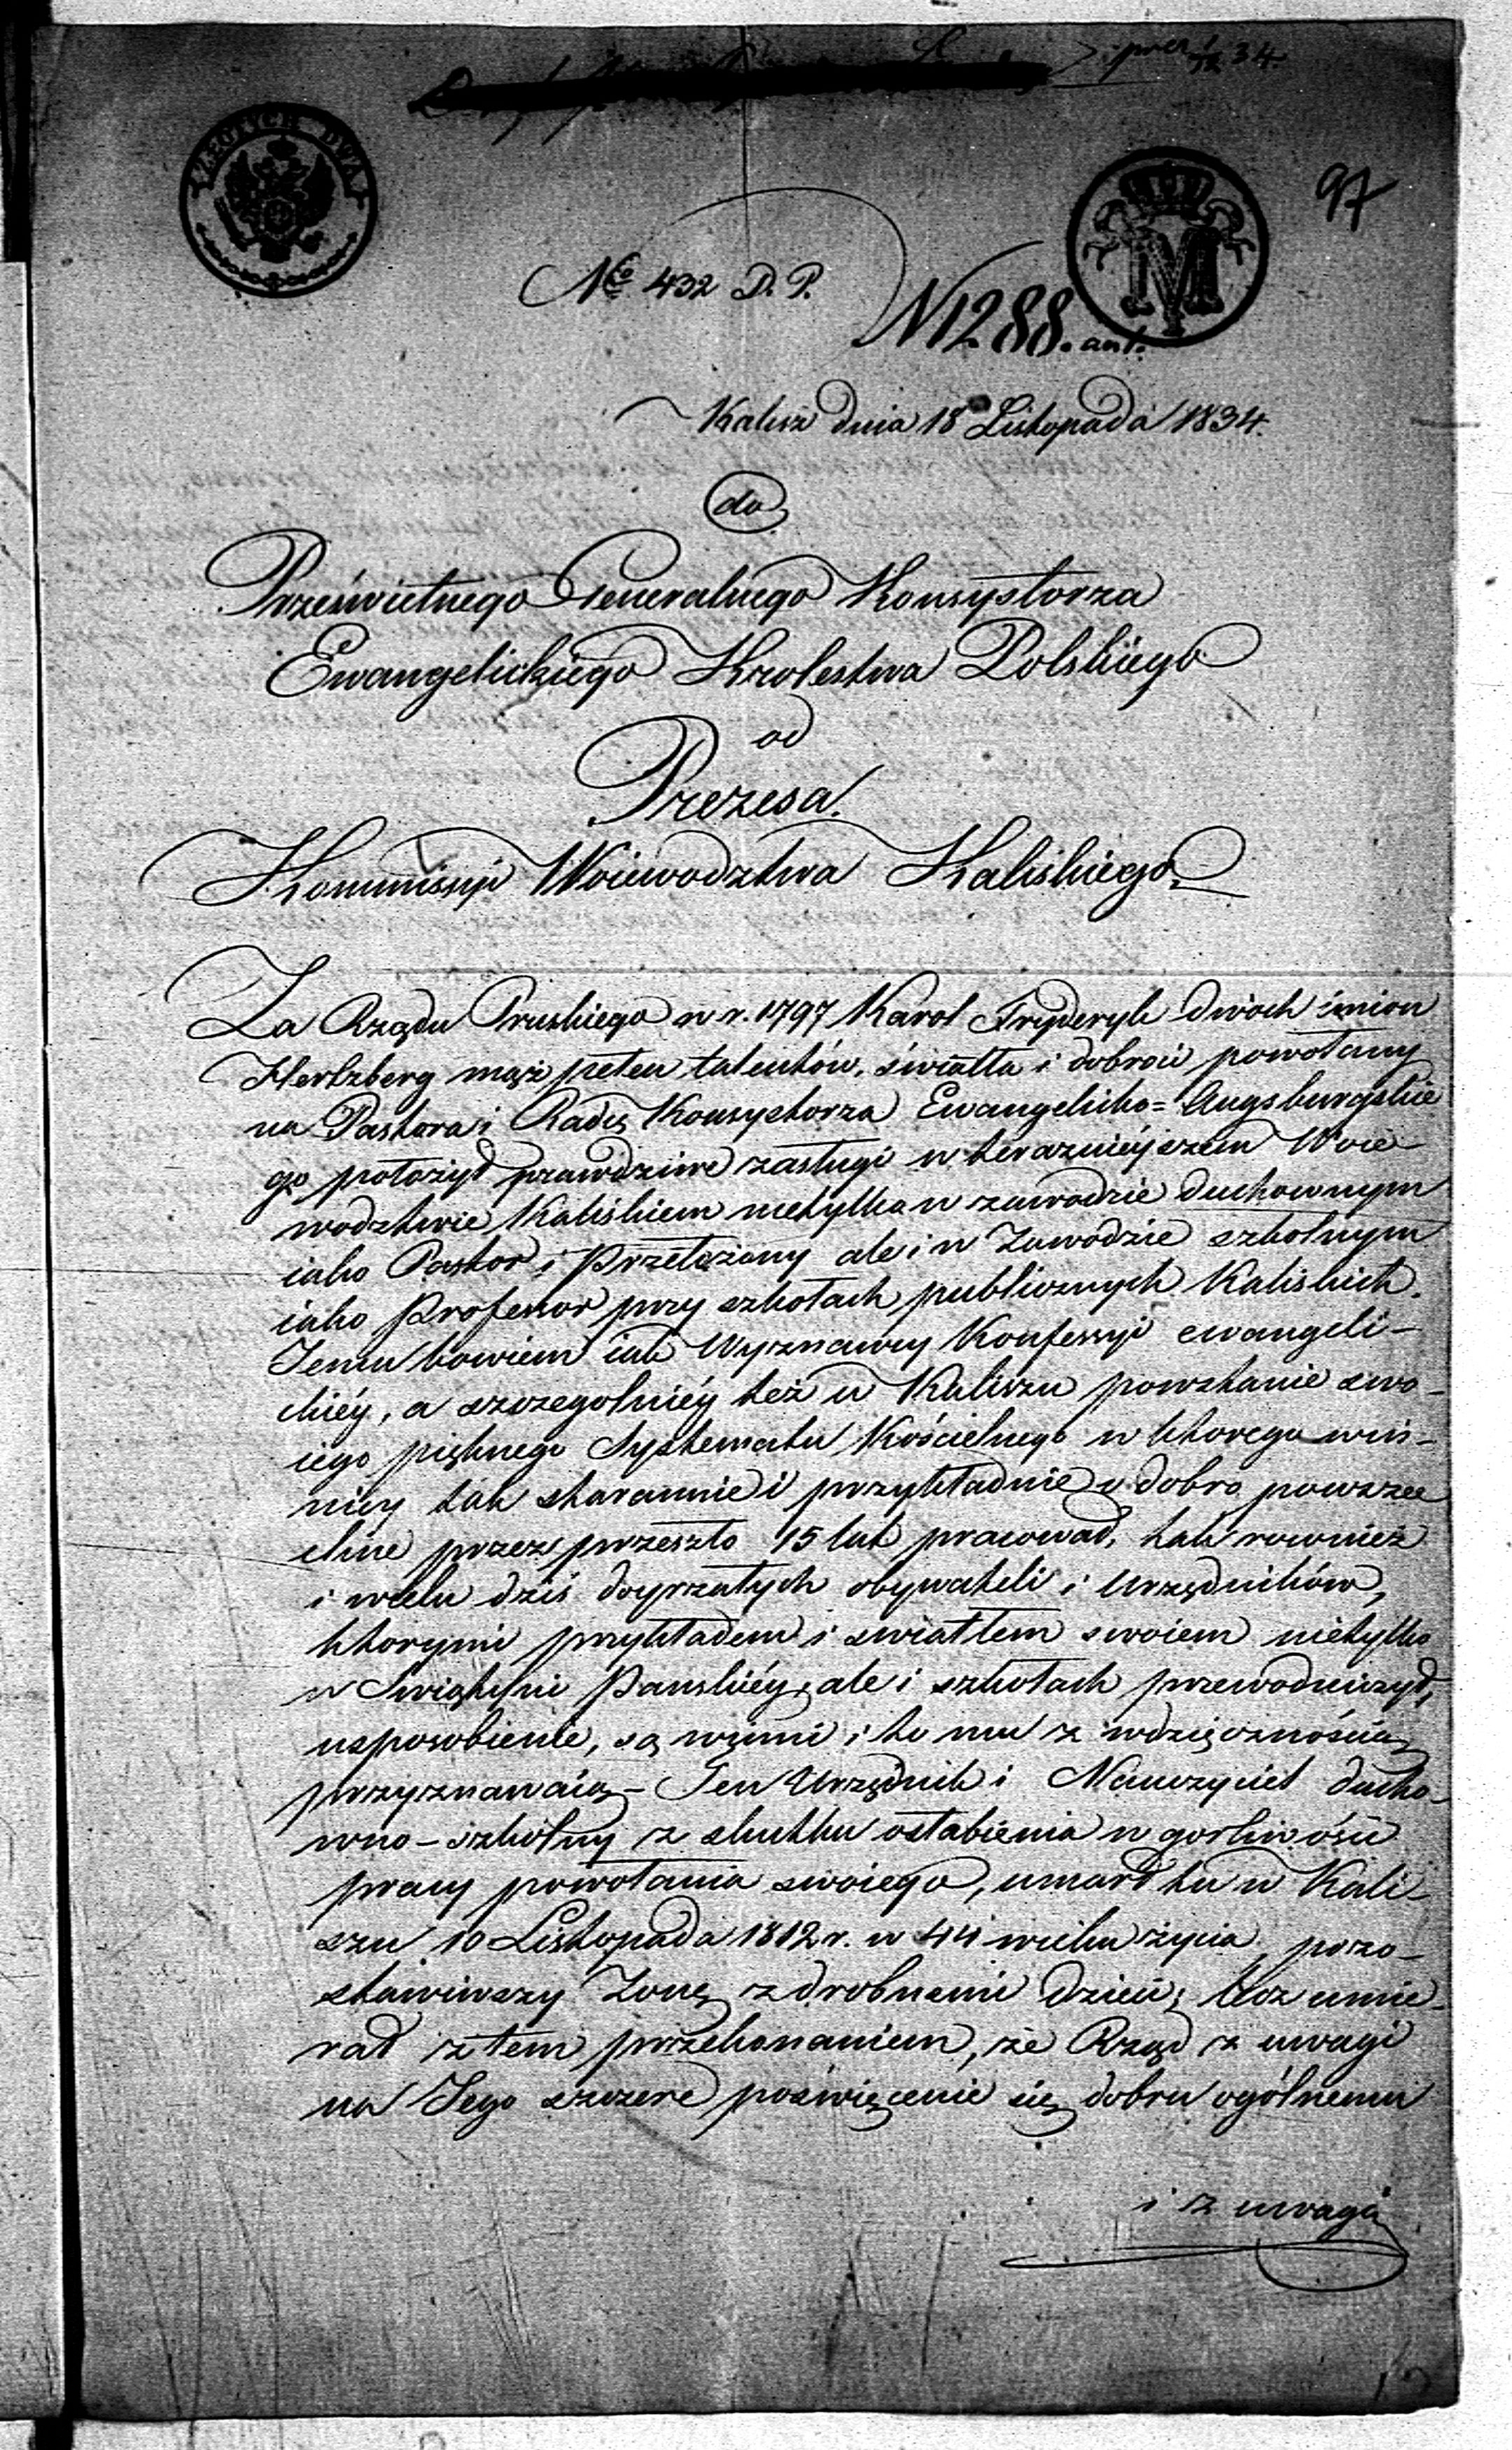 praes 1/12 34.
ZŁOTYCH DWA
97
No 432 D. P.
N 1288. ant.
Kalisz dnia 18 Listopada 1834.
do
Prześwietnego Generalnego Konsystorza
Ewangelickiego Krolestwa Polskiego
od
Prezesa.
Kommissyi Woiewodztwa Kaliskiego.
Za Rządu Pruskiego w r. 1797 Karol Fryderyk dwóch imion
Hertzberg mąż pełen talentów, światła i dobroci powołany
na Pastora i Radcę Konsystorza Ewangelicko=Augsburgskie
go położył prawdziwe zasługi w teraznieyszem Woie-
wodztwie Kaliskiem nietylko w zawodzie duchownym
iako Pastor i Przełożony ale i w Zawodzie szkolnym
iako Professor przy szkołach publicznych Kaliskich.
Temu bowiem iak Wyznawcy Konfessyi ewangeli-
ckiéy, a szczegolniéy też w Kaliszu powstanie swo-
iego pięknego Systematu Kościelnego w ktorego win-
nicy tak starannie i przykładnie o dobro powsze
chne przez przeszło 15 lat pracował, tak rownież
i wielu dziś doyrzałych obywateli i Urzędników,
ktorymi przykładem i swiatłem swoiem nietylko
w Swiątyni Panskiéy, ale i szkołach przewodniczył,
usposobienie, są winni i to mu z wdzięcznością
przyznawaią – Ten Urzędnik i Nauczyciel ducho-
wno–szkolny z skutku osłabienia w gorliwości
pracy powołania swoiego, umarł tu w Kali-
szu 10 Listopada 1812 r. w 44 wieku życia pozo-
stawiwszy Zonę z drobnemi dziećmi; Lecz umie-
rał z tem przekonaniem, że Rząd z uwagi
na Jego szczere poświęcenie się dobru ogólnemu
i z uwagi